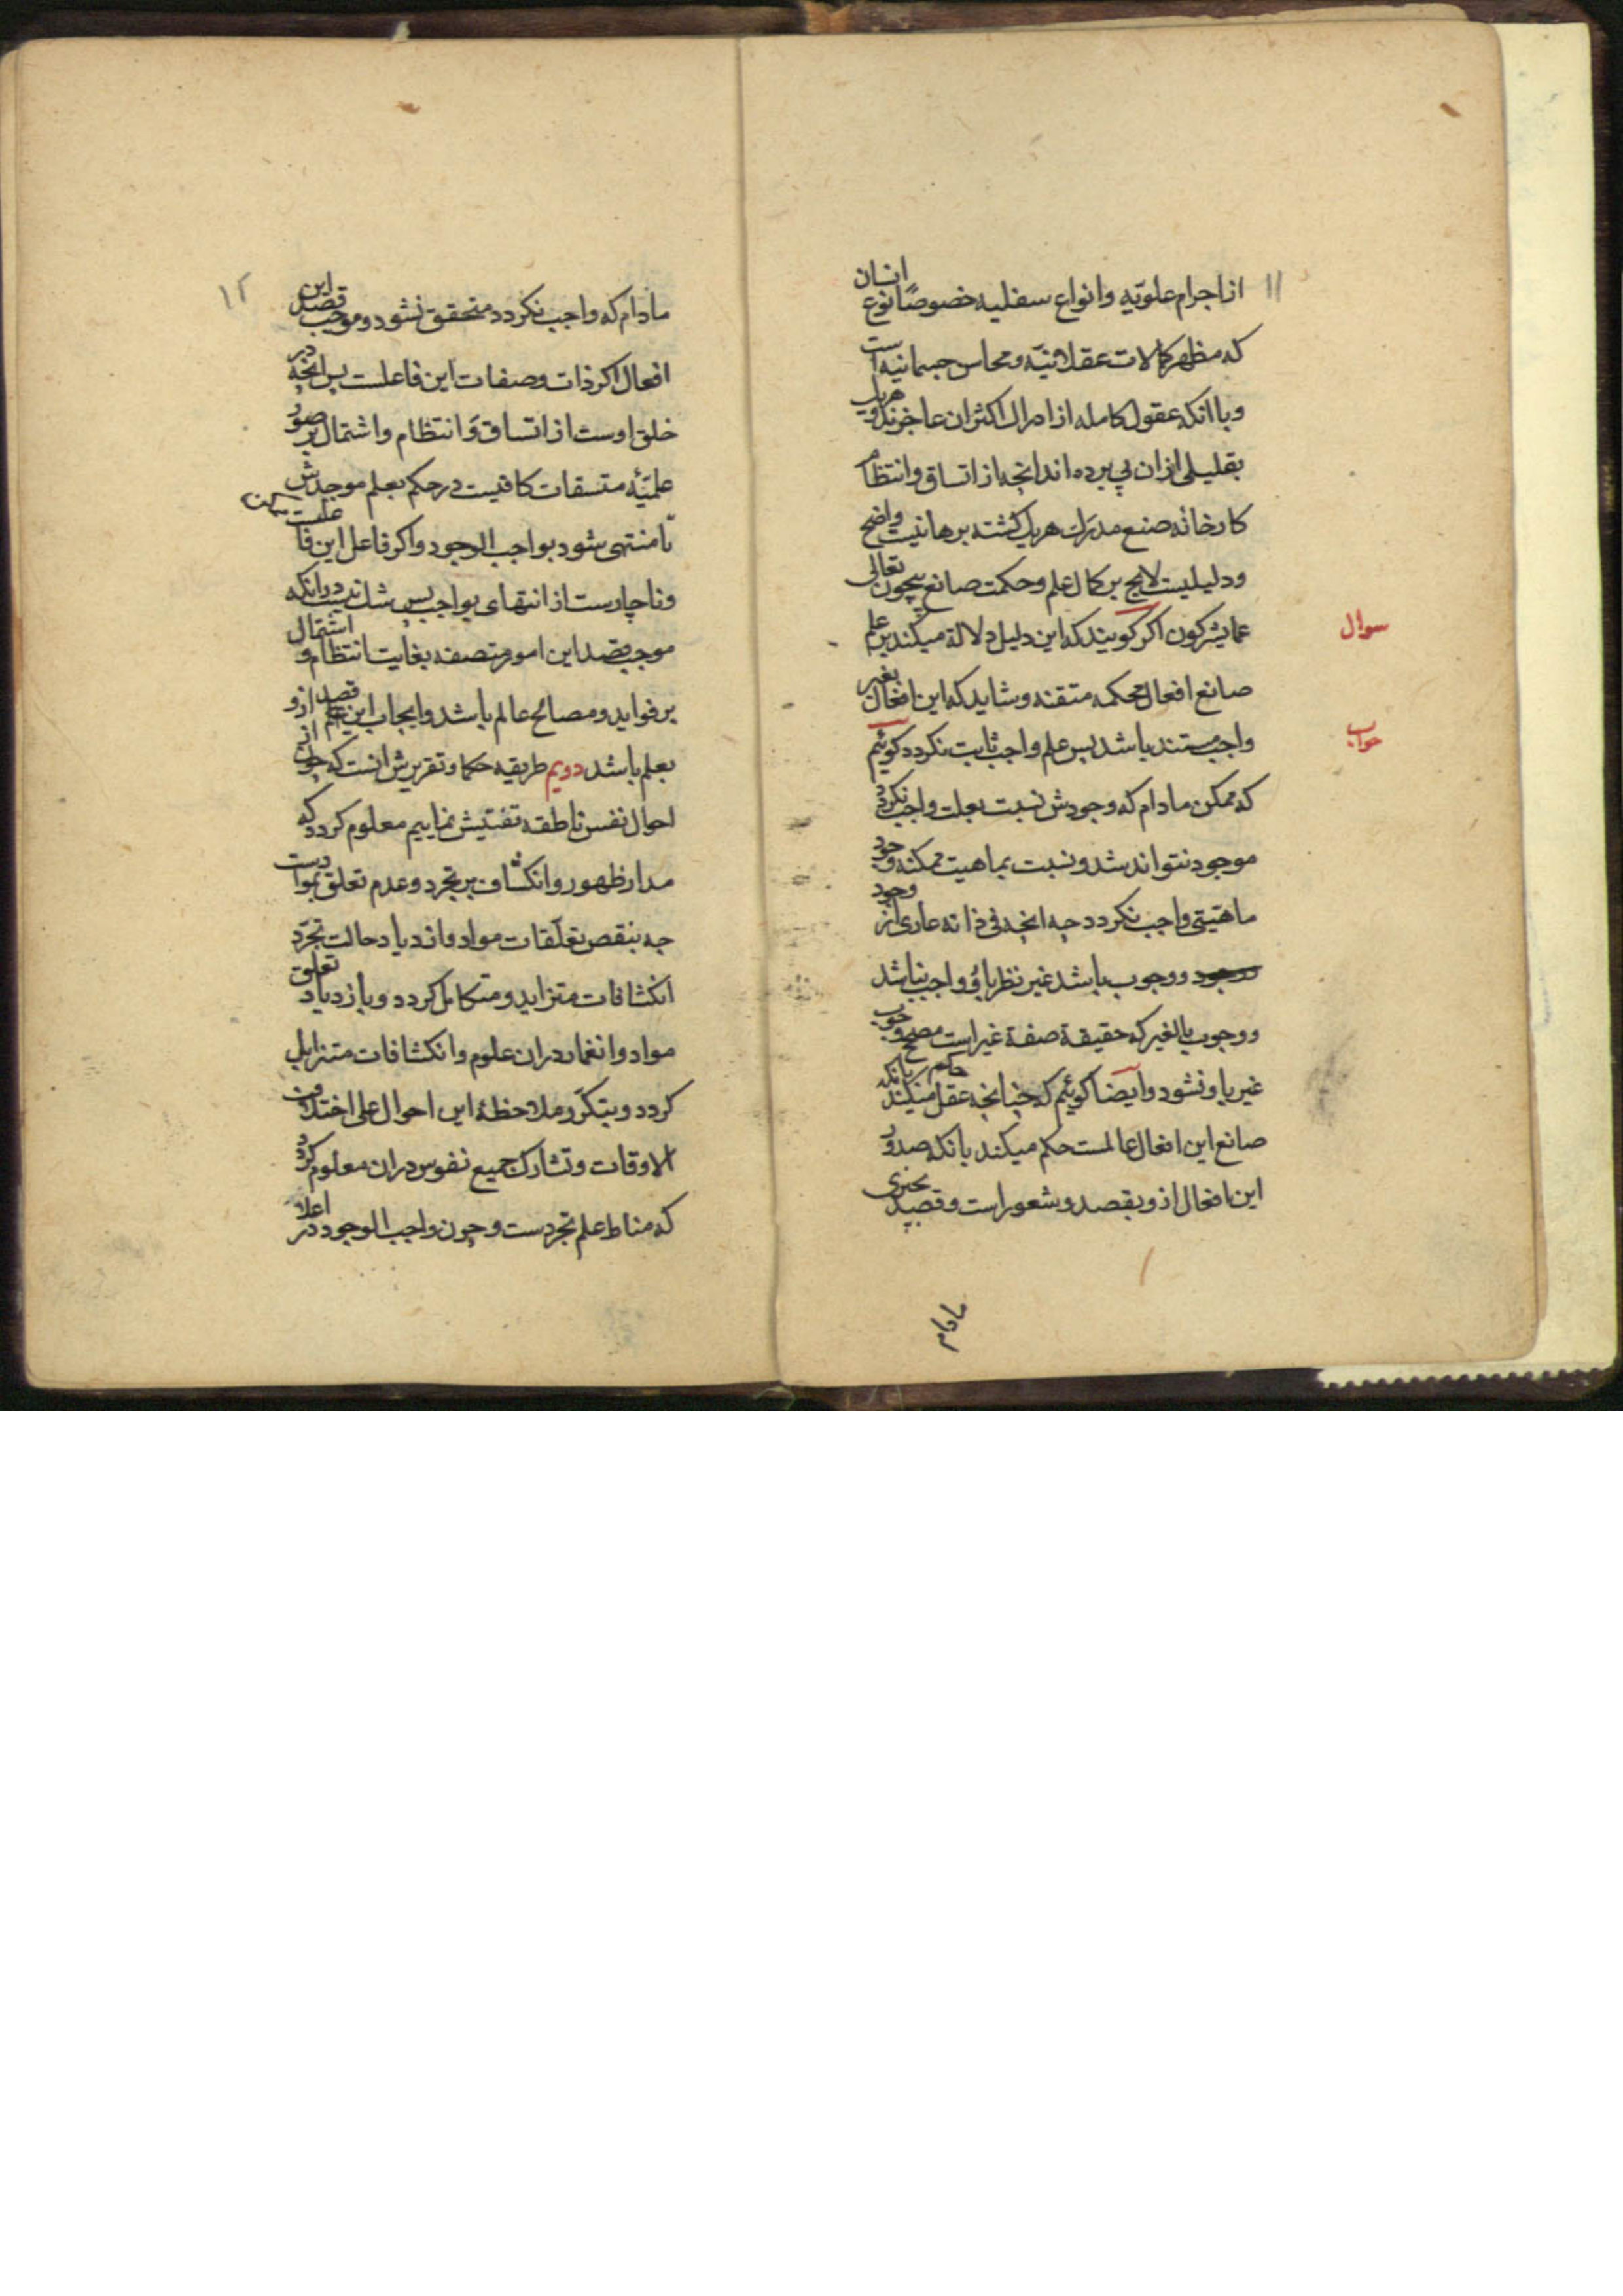 ۱۱
از اجرام علویّه و انواع سفلیه خصوصًا نوع انسان
که مظهر کمالات عقلانیّه و محاسن جسمانیه است
و با انکه عقول کامله از ادراک اکثر ان عاجزند و هریک
بقلیلی از ان پی برده اند انچه از اتساق و انتظام
کارخانه صنع مدرَک هریک کشته برهانیست واضح
و دلیلیست لایح بر کمال علم و حکمت صانع بیچون تعالی
عما یشرکون اکر کویند که این دلیل دلالة میکند بر علم
سوال
صانع افعال محکمه متقنه و شاید که این افعال بغیر
واجب مستند باشد پس علم واجب ثابت نکردد کوئیم
جواب
که ممکن مادام که وجودش نسبت بعلت واجب نکردد
موجود نتواند شد و نسبت بماهیت ممکنه وجود
ماهیتی واجب نکردد چه انچه فی ذاته عاری از وجود
و وجوب باشد غیر نظر باو واجب نباشد
و وجوب بالغیر که حقیقة صفة غیر است مصحح وجوب
غیر باو نشود و ایضا کوئیم که چنانچه عقل حکم میکند بانکه
صانع این افعال عالمست حکم میکند بانکه صدور
این افعال ازو بقصد و شعور است و قصد جزوی
مادام
۱۲
مادام که واجب نکردد متحقق نشود و موجب قصد این
افعال اکر ذات و صفات این فاعلست پس انچه در
خلق اوست از اتساق و انتظام و اشتمال بر صور
علمیّه متسقات کافیست در حکم بعلم موجدش
تا منتهی شود بواجب الوجود و اکر فاعل این فاعلست
و ناچارست از انتهای بواجب پس شک نیست در انکه
موجب قصد این امور متصفه بغایت انتظام و اشتمال
بر فواید و مصالح عالم باشد و ایجاب این قصد ازو
بعلم باشد دویم طریقه حکما و تقریرش انست که چون از
احوال نفس ناطقه تفتیش نماییم معلوم کردد که
مدار ظهور و انکشاف بر تجرد و عدم تعلق بموادست
چه بنقص تعلّقات مواد و ازدیاد حالت تجرّد
انکشافات متزاید و متکامل کردد و بازدیاد تعلق
مواد و انغمار در ان علوم و انکشافات متزایل
کردد و بتکرّر ملاحظهٔ این احوال علی اختلاف
الاوقات و تشارک جمیع نفوس در ان معلوم کردد
که مناط علم تجردست و چون واجب الوجود در اعلا